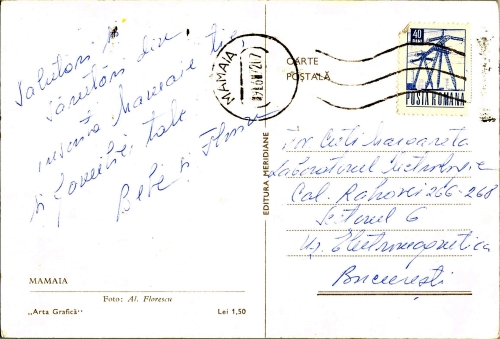 Salutări și
sărutări din
însorita Mamaia ție
și familiei tale
Bebe și
MAMAIA
Foto: Al. Florescu
„Arta Grafică“ Lei 1,50
EDITURA MERIDIANE
MAMAIA
CARTE
POȘTALĂ
40
BANI
POSTA ROMANA
Margareta
Laboratorul Metrologie
Cal. Rahovei 266-268
Sectorul 6
Electromagnetica
București